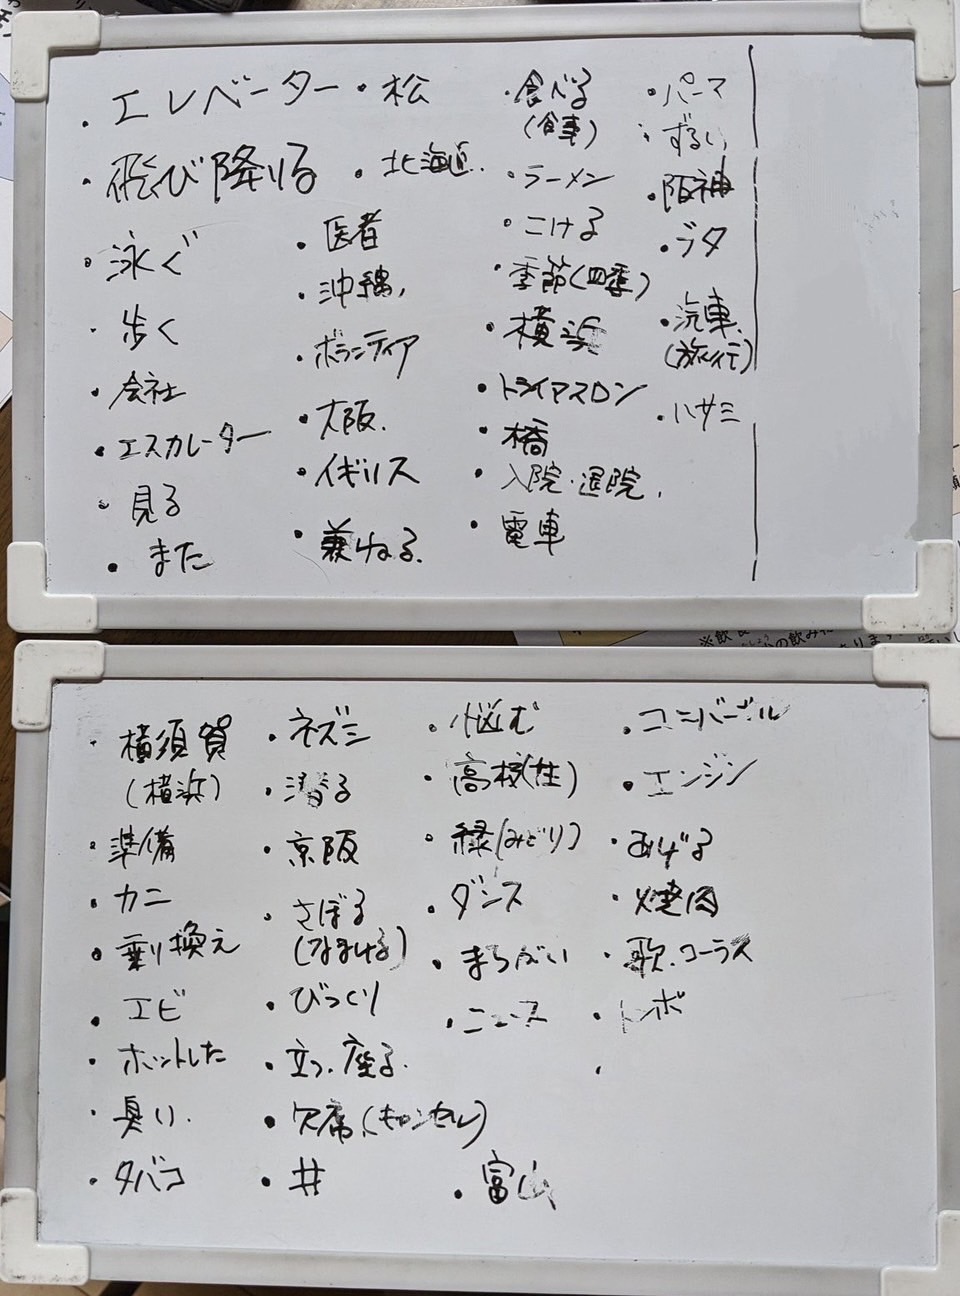 ・エレベーター
・飛び降りる
・泳ぐ
・歩く
・会社
・エスカレーター
・見る
・また
・松
・北海道
・医者
・沖縄
・ボランティア
・大阪
・イギリス
・兼ねる
・食べる
(食事)
・ラーメン
・こける
・季節(四季)
・横浜
・トライアスロン
・橋
・入院・退院
・電車
・パーマ
・ずるい
・阪神
・ブタ
・汽車
(旅行)
・ハサミ
・横須賀
(横浜)
・準備
・カニ
・乗り換え
・エビ
・ホットした
・臭い
・タバコ
・ネズミ
・潜る
・京阪
・さぼる
(なまける)
・びっくり
・立つ・座る
・欠席(キャンセル)
・井
・悩む
・高校(生)
・緑(みどり)
・ダンス
・まちがい
・ニュース
・富山
・エンジン
・あげる
・焼肉
・歌・コーラス
・トンボ
・
※飲
の飲み